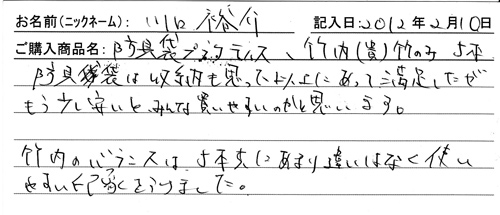 お名前(ニックネーム): 川口 裕介 記入日:2012年2月10日
ご購入商品名: 防具袋プラクティス、竹内(貴)竹のみ 5本
防具袋は収納も思った以上にあって満足したが
もう少し安いと、みんな買いやすいのかと思います。
竹内のバランスは、5本共にあまり違いはなく使い
やすい印象をうけました。